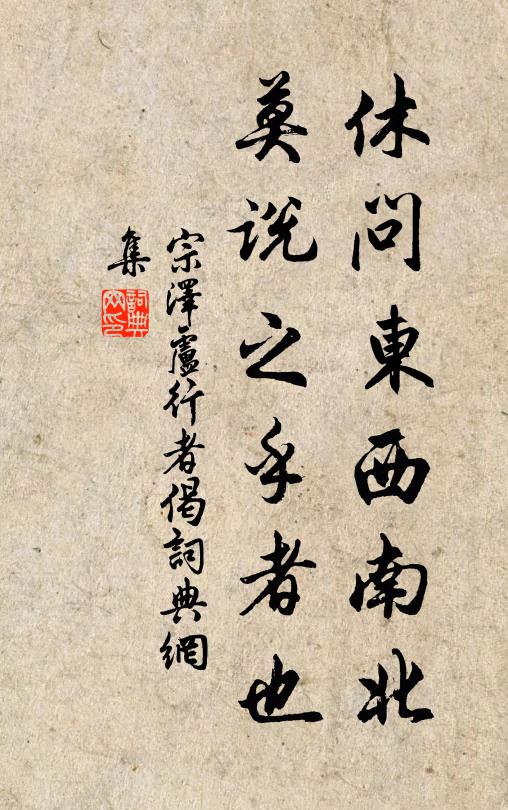 休問東西南北
莫説之乎者也
宗澤盧行者偈詞典網
集
詞典
网印